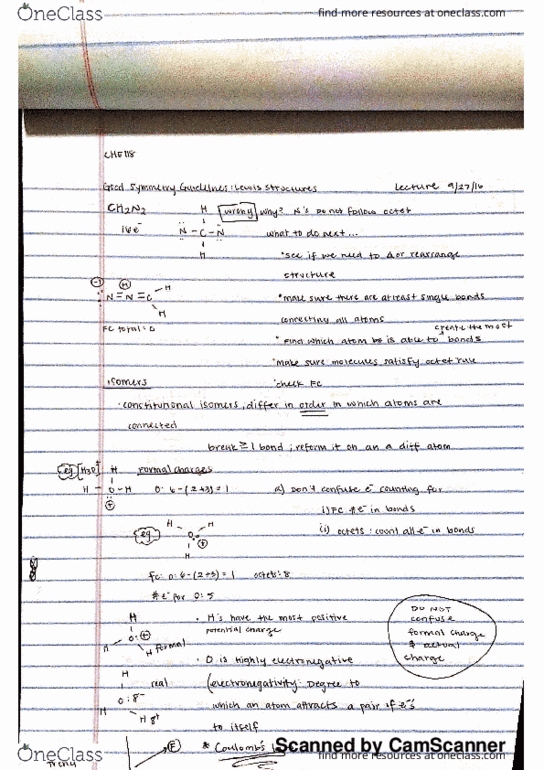 OneClass find more resources at oneclass.com
CHE118
Good Symmetry Guidelines: Lewis Structures Lecture 9/27/16
CH2N2 H wrong why? N's Do not follow octet
16e⁻ N-C-N what to do next...
H
"see if we need to Δ or rearrange
structure
(-1) (+1) H
N=N=C
H
"make sure there are atleast single bonds
connecting all atoms
FC total=0
create the most
"Find which atom is able to bonds
"make sure molecules satisfy octet rule
isomers "check FC
·constitutional isomers, differ in order in which atoms are
connected
break ≥1 bond; reform it on an a diff atom
eg [H3O⁺] H Formal charges
H-O-H O: 6-(2+3)=1 Don't confuse e⁻ counting for
(+)
i) FC #e⁻ in bonds
(ii) octets: count all e⁻ in bonds
eg H H
O (+)
H
fc: O: 6-(2+3)=1 octets: 8
#e⁻ for O: 5
H
O: (+)
H H Formal
· H's have the most positive
potential charge
DO NOT
confuse
formal charge
& actual
charge
· O is highly electronegative
H real (electronegativity: Degree to
O: δ⁻
H H δ⁺
which an atom attracts a pair of e⁻s
to itself
(F) * Coulomb's
Scanned by CamScanner
OneClass find more resources at oneclass.com